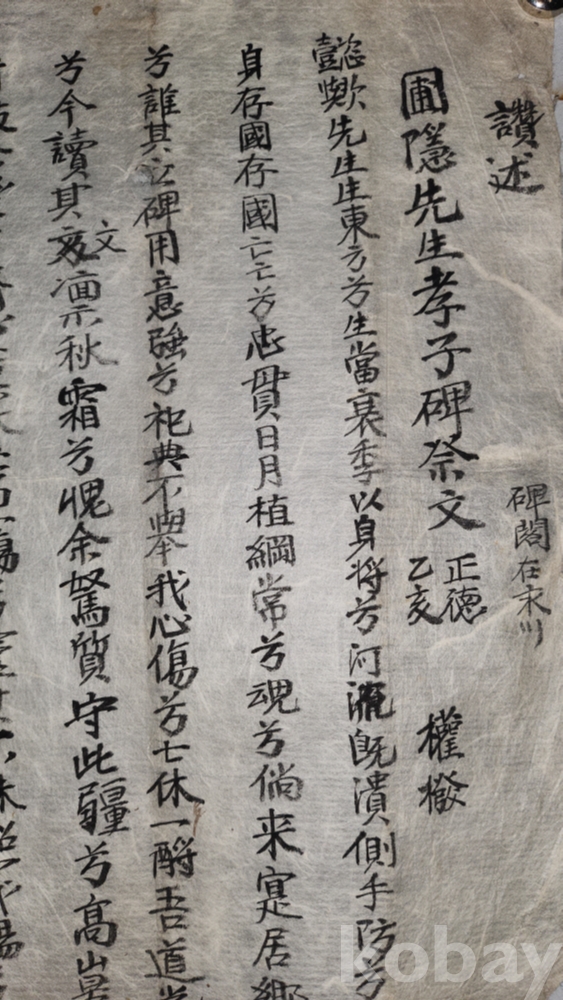 讚述
圃隱先生孝子碑祭文 正德乙亥 權橃
碑閣在永川
懿歟先生生東方兮生當衰季以身將兮河流旣潰側手防兮
身存國存國亡亡兮忠貫日月植綱常兮魂兮倘来寔居鄉
兮誰其立碑用意強兮祀典不擧我心傷兮七休一酹吾道光
兮今讀其文凛秋霜兮愧余駑質守此疆兮高山景
kobay